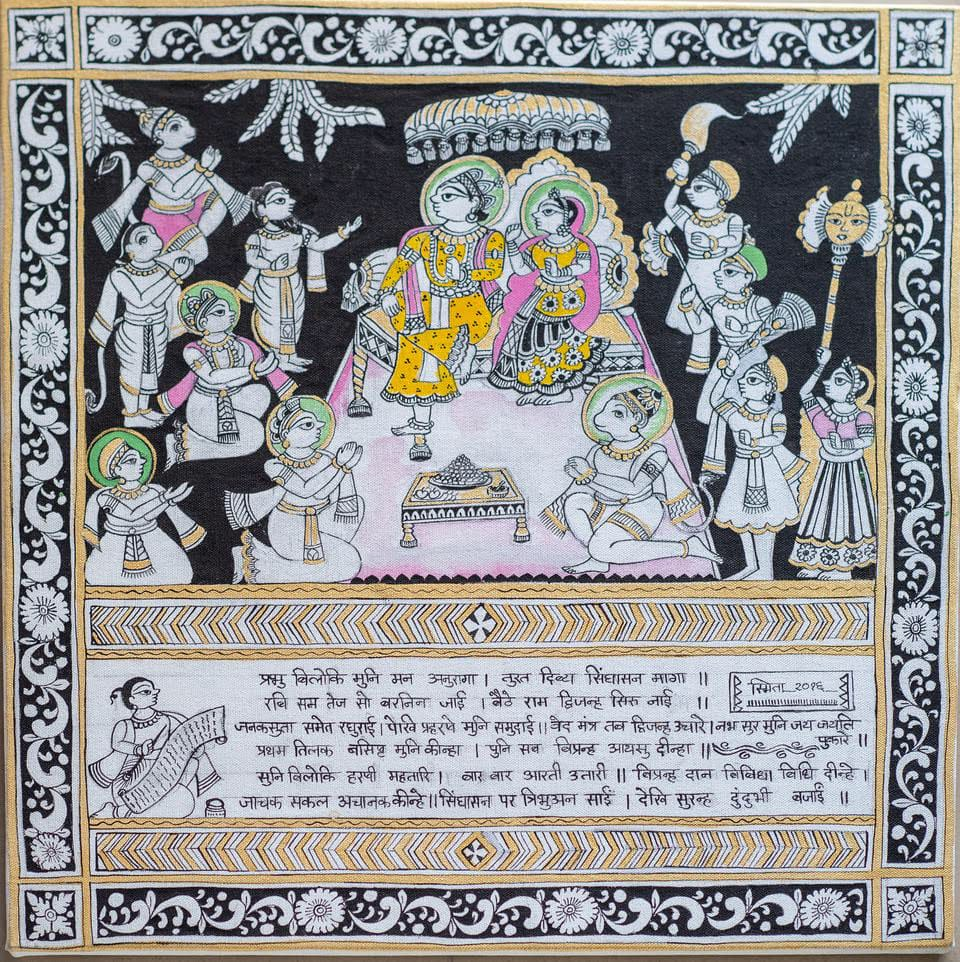 प्रभु बिलोकि मुनि मन अनुरागा । तुरत दिब्य सिंघासन मागा ॥
रबि सम तेज सो बरनिन जाई । बैठे राम द्विजन्ह सिरु नाई ॥
जनकसुता समेत रघुराई । पेखि प्रहरषे मुनि समुदाई ॥ बेद मंत्र तब द्विजन्ह उचारे । नभ सुर मुनि जय जयति
पुकारे ॥
प्रथम तिलक बसिष्ट मुनि कीन्हा । पुनि सब बिप्रन्ह आयसु दीन्हा ॥
सुनि बिलोकि हरषी महतारि । बार बार आरती उतारी ॥ बिप्रन्ह दान बिबिधि बिधि दीन्हे ।
जाचक सकल अचानक कीन्हे ॥ सिंघासन पर त्रिभुअन साईं । देखि सुरन्ह दुंदुभी बजाईं ॥
स्मिता २०१६